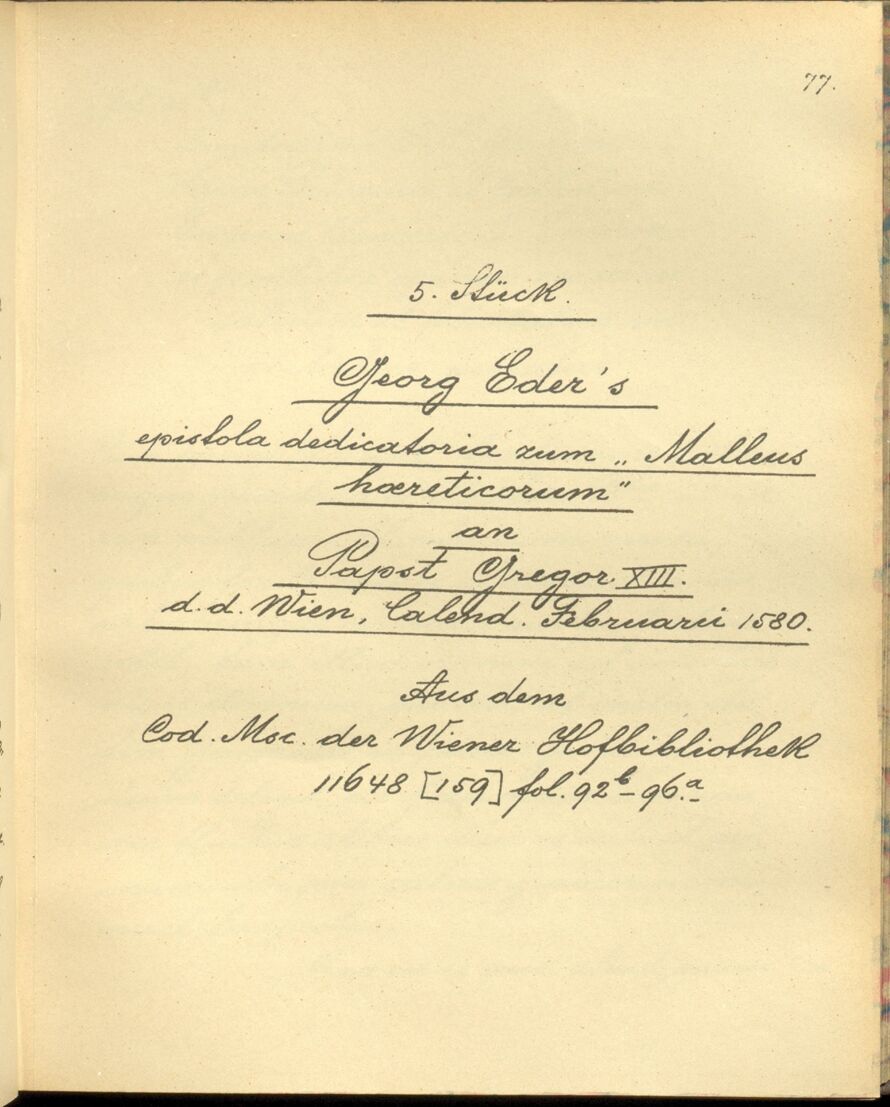 77.
5. Stück.
Georg Eder's
epistola dedicatoria zum „Malleus
hæreticorum"
an
Papst Gregor XIII.
d. d. Wien, Calend. Februarii 1580.
Aus dem
Cod. Msc. der Wiener Hofbibliothek
11648 [159] fol. 92b – 96.a